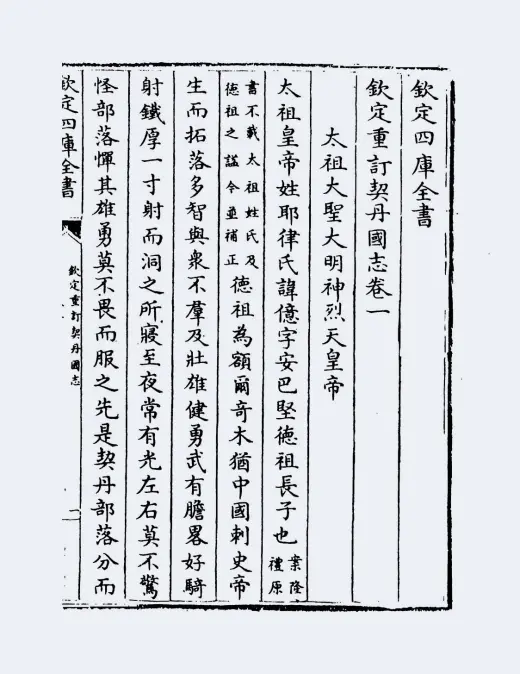 欽定四庫全書
欽定重訂契丹國志卷一
太祖大聖大明神烈天皇帝
太祖皇帝姓耶律氏諱億字安巴堅德祖長子也案隆禮原
書不載太祖姓氏及德祖之諡今並補正德祖為額爾奇木猶中國刺史帝
生而拓落多智與衆不羣及壯雄健勇武有膽畧好騎
射鐵厚一寸射而洞之所寢至夜常有光左右莫不驚
怪部落憚其雄勇莫不畏而服之先是契丹部落分而
欽定四庫全書
欽定重訂契丹國志
一